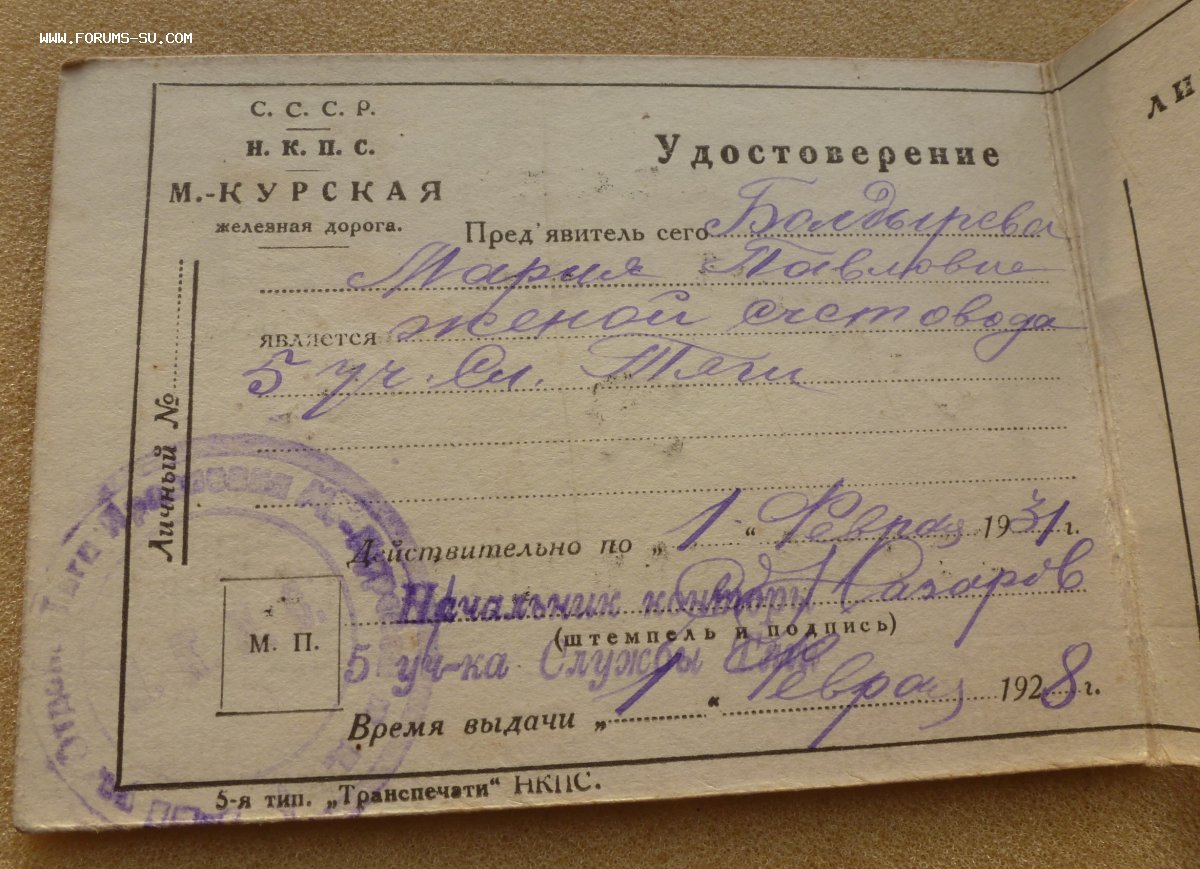 WWW.FORUMS-SU.COM
С. С. С. Р.
Н. К. П. С.
М.-КУРСКАЯ
железная дорога.
Личный №
Удостоверение
Пред'явитель сего Болдырева
Мария Павловна
является женой счетовода
5 уч. Сл. Тяги
Действительно по „ 1 “ Февраля 1931 г.
Начальник конторы Назаров
(штемпель и подпись)
5 уч-ка Службы Тяги
М. П.
Время выдачи „ 1 “ Февраля 1928 г.
5-я тип. „Транспечати“ НКПС.
ЛИ